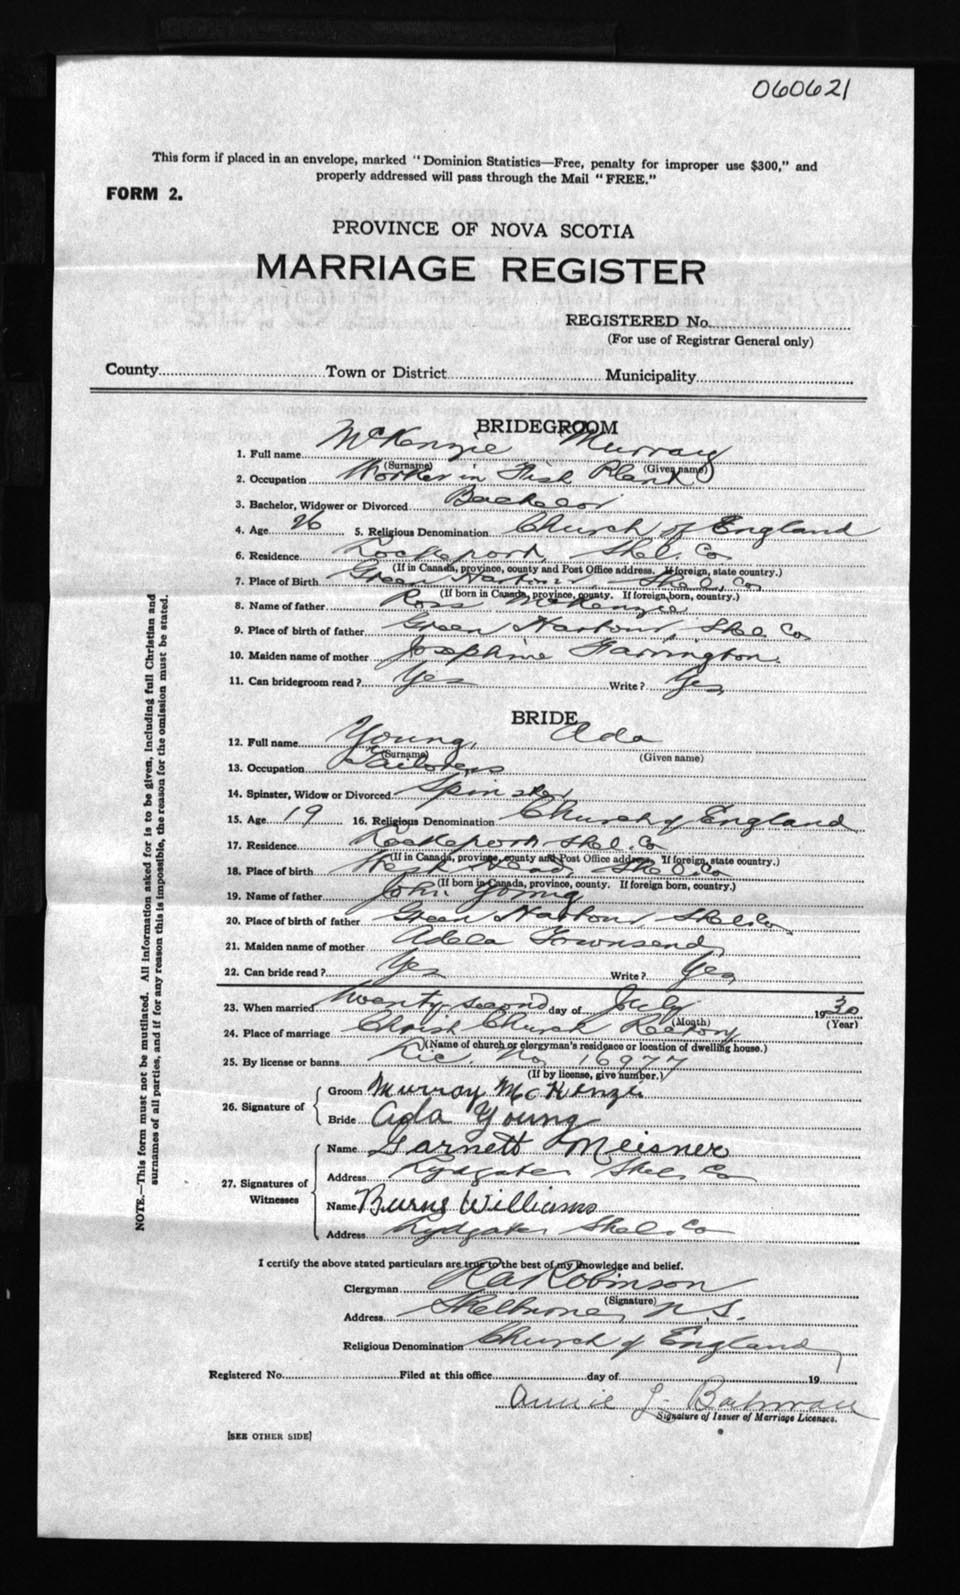 060621
This form if placed in an envelope, marked "Dominion Statistics—Free, penalty for improper use $300," and
properly addressed will pass through the Mail "FREE."
FORM 2.
PROVINCE OF NOVA SCOTIA
MARRIAGE REGISTER
REGISTERED No.
(For use of Registrar General only)
County Town or District Municipality
BRIDEGROOM
1. Full name McKenzie Murray
(Surname) (Given name)
2. Occupation Worker in Fish Plant
3. Bachelor, Widower or Divorced Bachelor
4. Age 26 5. Religious Denomination Church of England
6. Residence Lockeport, Shel. Co
(If in Canada, province, county and Post Office address. If foreign, state country.)
7. Place of Birth Green Harbour, Shel. Co
(If born in Canada, province, county. If foreign born, country.)
8. Name of father Ross McKenzie
9. Place of birth of father Green Harbour, Shel. Co
10. Maiden name of mother Josephine Farrington
11. Can bridegroom read? Yes Write? Yes
BRIDE
12. Full name Young, Ada
(Surname) (Given name)
13. Occupation
14. Spinster, Widow or Divorced Spinster
15. Age 19 16. Religious Denomination Church of England
17. Residence Lockeport Shel. Co
(If in Canada, province, county and Post Office address. If foreign, state country.)
18. Place of birth West Head, Shel. Co
(If born in Canada, province, county. If foreign born, country.)
19. Name of father John Young
20. Place of birth of father Green Harbour, Shel. Co.
21. Maiden name of mother Adela Townsend
22. Can bride read? Yes Write? Yes
23. When married twenty-second day of July 1930
(Month) (Year)
24. Place of marriage Christ Church Rectory
(Name of church or clergyman's residence or location of dwelling house.)
25. By license or banns Lic. No 16977
(If by license, give number.)
26. Signature of
Groom Murray McKenzie
Bride Ada Young
27. Signatures of Witnesses
Name Garnett Meisner
Address Lydgate, Shel. Co
Name Burns Williams
Address Lydgate Shel. Co
I certify the above stated particulars are true to the best of my knowledge and belief.
Clergyman Robinson
(Signature)
Address Shelburne, N.S.
Religious Denomination Church of England
Registered No. Filed at this office day of 19
Annie L.
Signature of Issuer of Marriage Licenses.
[SEE OTHER SIDE]
NOTE.—This form must not be mutilated. All information asked for is to be given, including full Christian and
surnames of all parties, and if for any reason this is impossible, the reason for the omission must be stated.